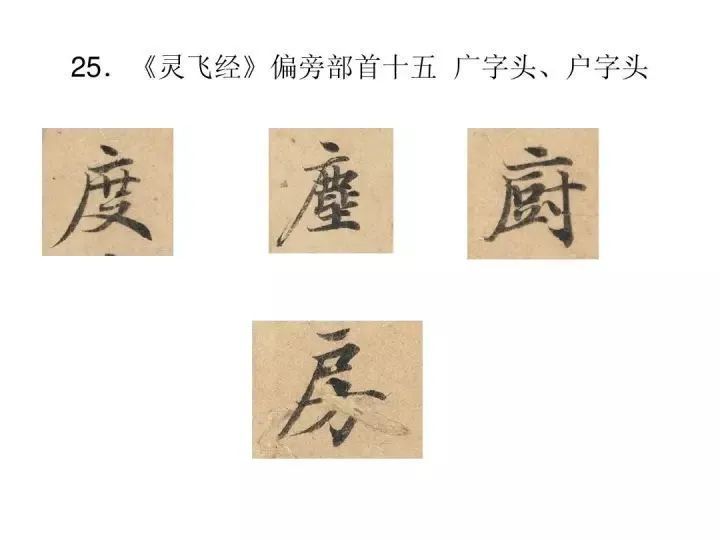 25.《灵飞经》偏旁部首十五 广字头、户字头
度 塵 廚
房